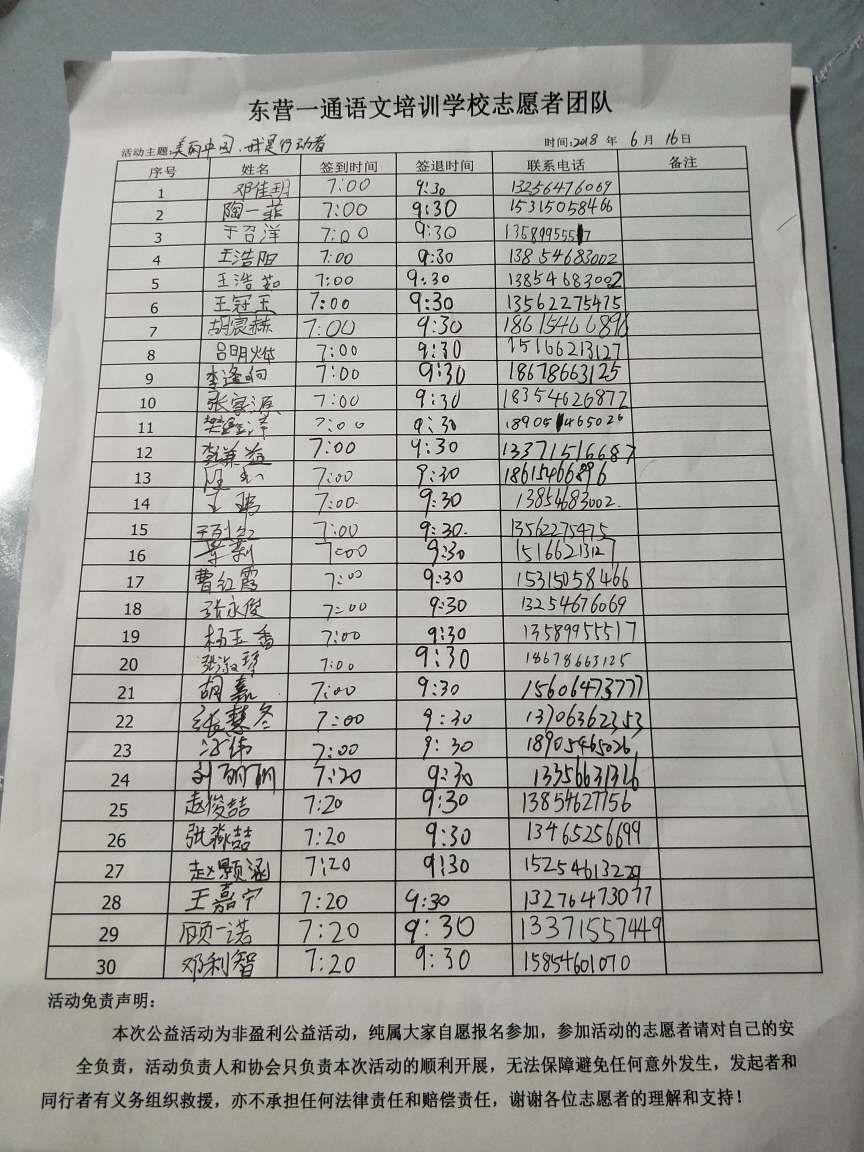 东营一通语文培训学校志愿者团队
活动主题:美丽中国,我是行动者 时间:2018 年 6 月 16 日
序号 姓名 签到时间 签退时间 联系电话 备注
1 邓佳玥 7:00 9:30 13256476069
2 陶一菲 7:00 9:30 15315058466
3 于召洋 7:00 9:30
4 王浩阳 7:00 9:30 13854683002
5 王浩茹 7:00 9:30 13854683002
6 王冠玉 7:00 9:30 13562275475
7 胡宸赫 7:00 9:30 18615466896
8 7:00 9:30 15166213127
9 7:00 9:30 18678663125
10 张家源 7:00 9:30 18354626872
11 7:00 9:30
12 李兼益 7:00 9:30 13371516687
13 7:00 9:30 18615466896
14 7:00 9:30 13854683002.
15 7:00 9:30. 13562275475
16 7:00 9:30 15166213127
17 曹红霞 7:00 9:30 15315058466
18 张永俊 7:00 9:30 13254676069
19 杨玉香 7:00 9:30 13589955517
20 张淑琴 7:00 9:30 18678663125
21 胡嘉 7:00 9:30 15606473777
22 张慧冬 7:00 9:30 13706362353
23 7:00 9:30 18905465026
24 刘丽丽 7:20 9:30 13356631316
25 赵俊喆 7:20 9:30 13854627756
26 张淼喆 7:20 9:30 13465256699
27 赵颢涵 7:20 9:30
28 王嘉宁 7:20 9:30 13276473077
29 顾一诺 7:20 9:30 13371557449
30 邓利智 7:20 9:30 15854601070
活动免责声明:
本次公益活动为非盈利公益活动,纯属大家自愿报名参加,参加活动的志愿者请对自己的安
全负责,活动负责人和协会只负责本次活动的顺利开展,无法保障避免任何意外发生,发起者和
同行者有义务组织救援,亦不承担任何法律责任和赔偿责任,谢谢各位志愿者的理解和支持!